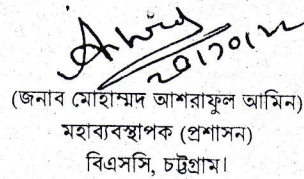 (জনাব মোহাম্মদ আশরাফুল আমিন)
মহাব্যবস্থাপক (প্রশাসন)
বিএসসি, চট্টগ্রাম।